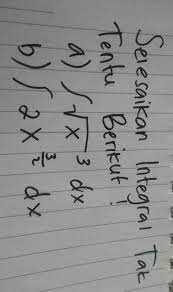 Selesaikan Integral Tak
Tentu Berikut!
a) ∫ √x³ dx
b) ∫ 2x^(3/2) dx